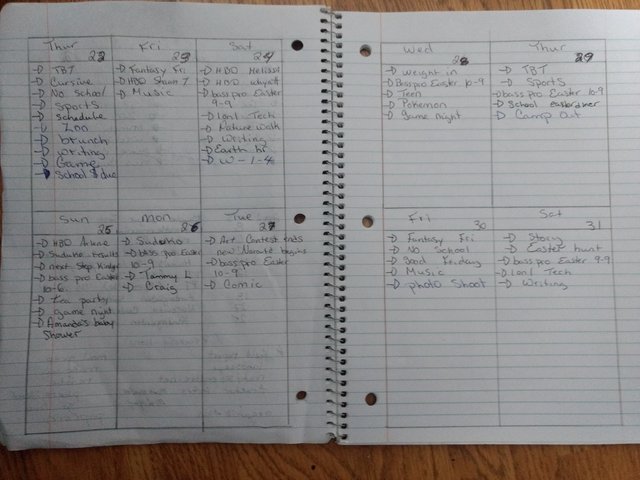 Thur
22
→ TBT
→ Cursive
→ No School
→ Sports
→ Schedule
→ Zoo
→ brunch
→ writing
→ Game
→ School $ due
Fri
23
→ Fantasy Fri
→ HBD Shaun T
→ Music
Sat
24
→ HBD Melissa
→ HBD
→ bass pro Easter
9-9
→ 1on1 Tech
→ Nature walk
→ Writing
→ Earth hr
→ W-1-4
Sun
25
→ HBD Arlene
→ Suduko results
→ next Step
→ bass pro Easter
10-6
→ Tea party
→ game night
→ Amanda's baby
Shower
mon
26
→ Suduko
→ bass pro Easter
10-9
→ Tammy L
→ Craig
Tue
27
→ Art Contest ends
new Naruto begins
→ bass pro Easter
10-9
→ Comic
Wed
28
→ weight in
→ Bass pro Easter 10-9
→ Teen
→ Pokemon
→ Game night
Thur
29
→ TBT
→ Sports
→ bass pro Easter 10-9
→ School easter diner
→ Camp Out
Fri
30
→ Fantasy Fri
→ No School
→ Good Friday
→ Music
→ photo Shoot
Sat
31
→ Story
→ Easter hunt
→ bass pro Easter 9-9
→ 1on1 Tech
→ Writing